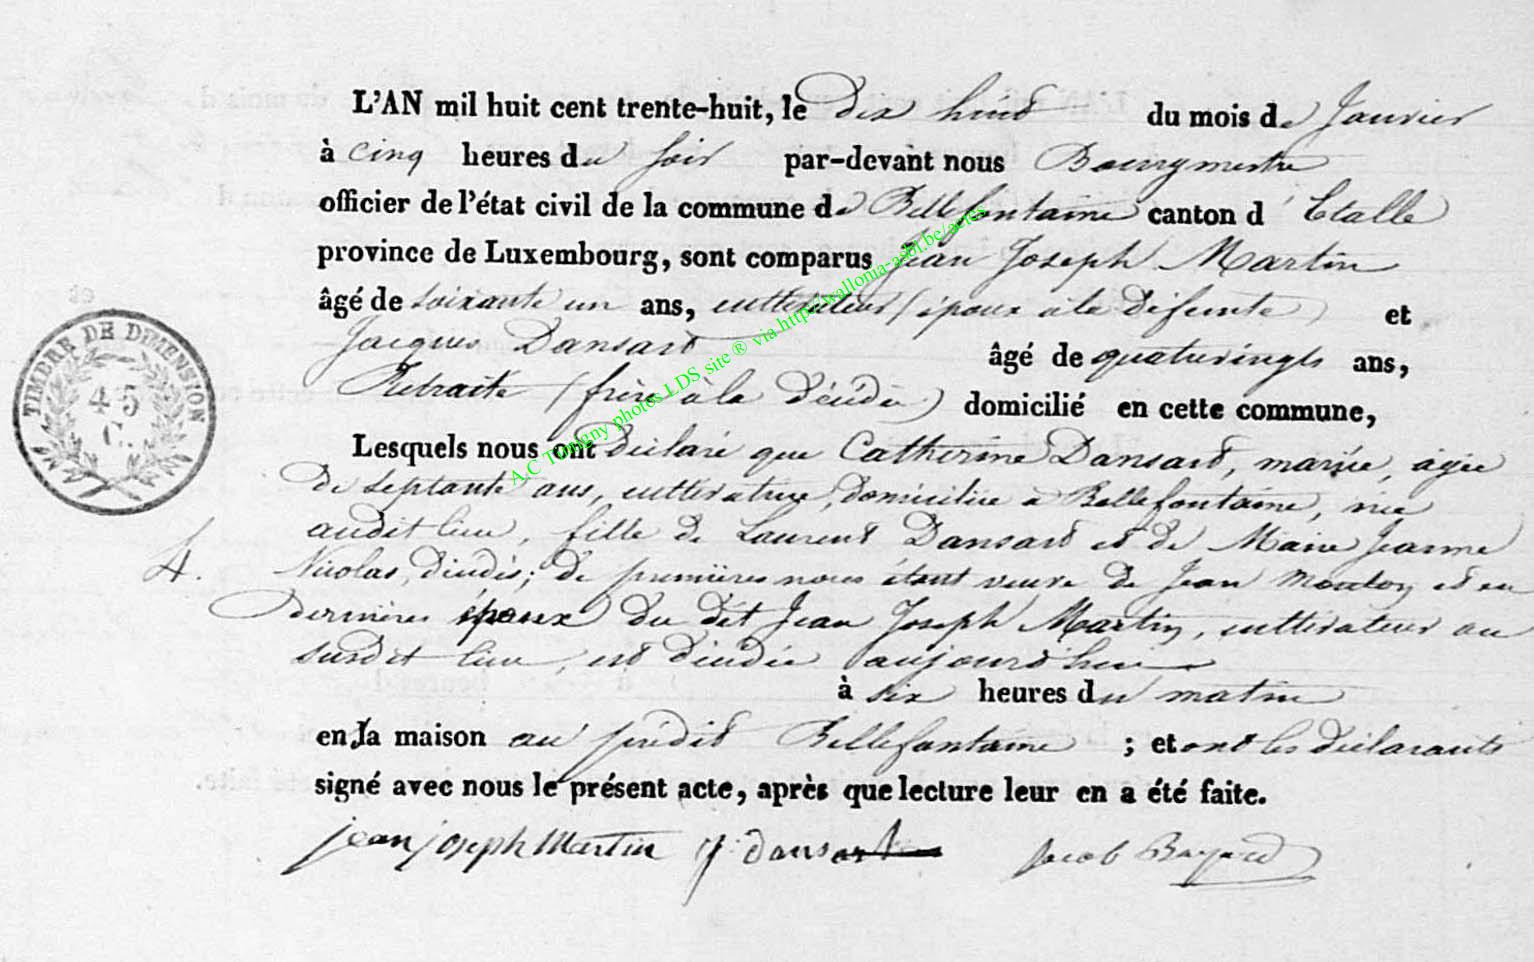 L'AN mil huit cent trente-huit, le dix huit du mois de Janvier
à cinq heures du soir par-devant nous Bourgmestre
officier de l'état civil de la commune de Bellefontaine canton d' Etalle
province de Luxembourg, sont comparus Jean Joseph Martin
âgé de soixante un ans, cultivateur (époux à la défunte) et
Jacques Dansart âgé de quatrevingts ans,
Retraité (frère à la décédée) domicilié en cette commune,
Lesquels nous ont déclaré que Catherine Dansart, mariée, âgée
de septante ans, cultivatrice, domiciliée à Bellefontaine, née
audit lieu, fille de Laurent Dansart et de Marie Jeanne
4. Nicolas, décédés; de premières noces étant veuve de Jean Mouton et en
dernières épouse du dit Jean Joseph Martin, cultivateur au
susdit lieu, est décédée aujourd'hui
à six heures du matin
en la maison au prédit Bellefontaine ; et ont les déclarants
signé avec nous le présent acte, après que lecture leur en a été faite.
jean joseph Martin J. dansart Jacob Bayard
TIMBRE DE DIMENSION
45
C.
A.C Tintigny photos LDS site ® via http://wallonia-asbl.be/actes